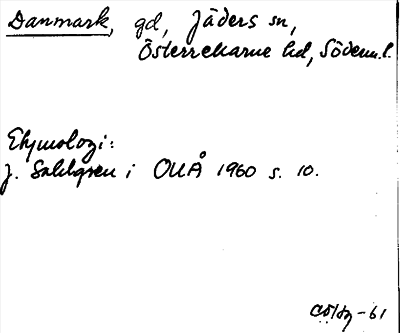 Danmark, gd, Jäders sn,
Österrekarne hd, Söderm.l.
Etymologi:
J. Sahlgren i OUÅ 1960 s. 10.
-61